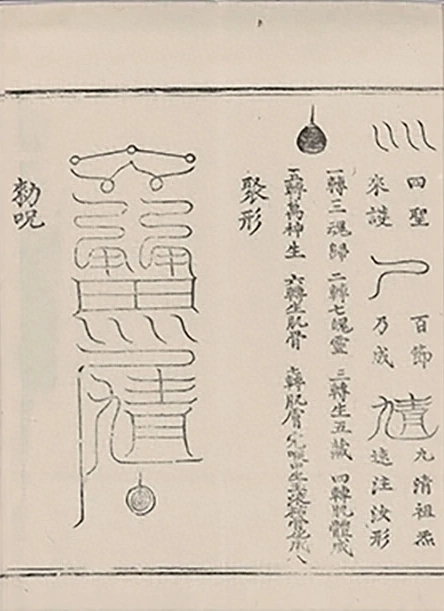 四聖
來護
百節
乃成
九清祖炁
速注汝形
一轉三魂歸 二轉七魄靈 三轉生五藏 四轉肌體成
五轉萬神生 六轉生肌骨 七轉肌膚完
聚形
勑呪